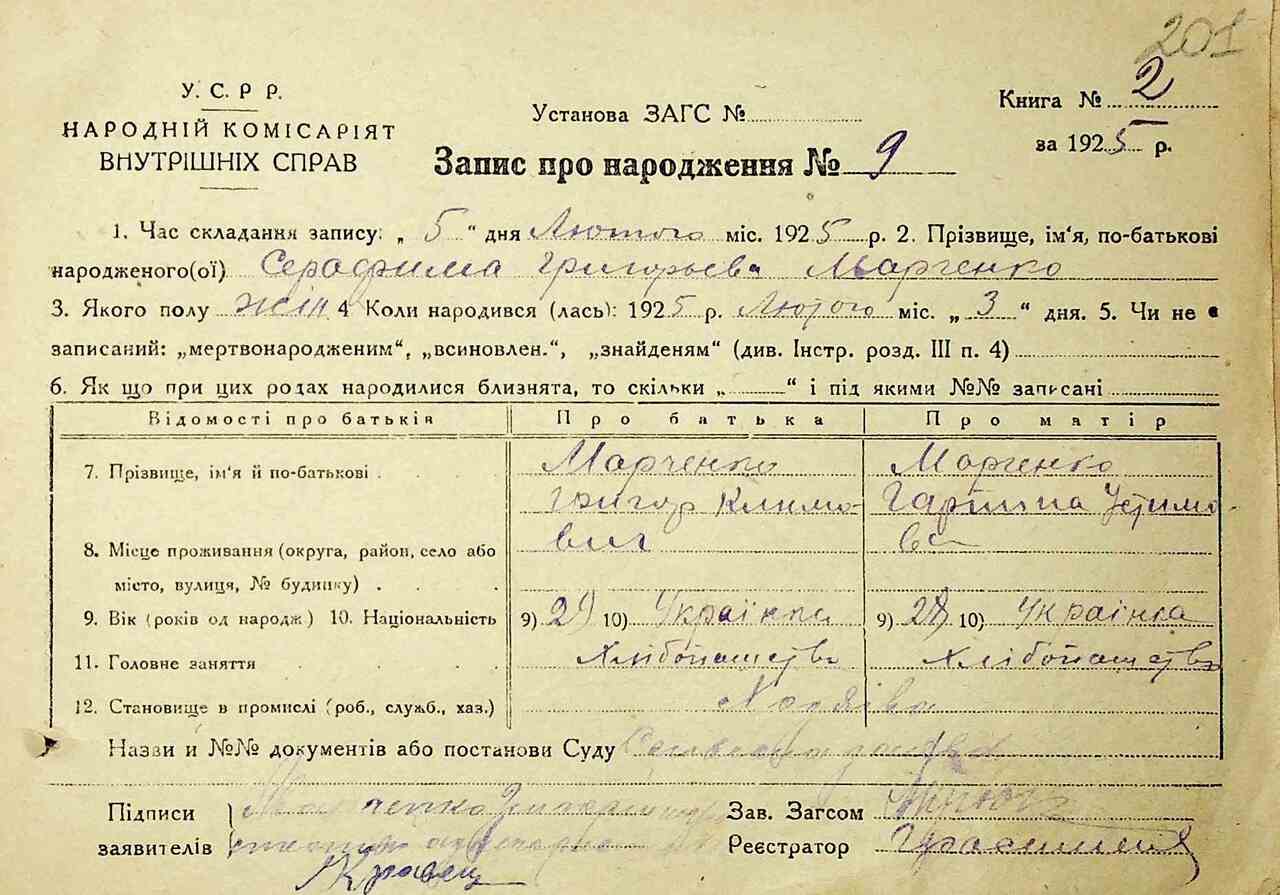 201
У. С. Р Р.
НАРОДНІЙ КОМІСАРІЯТ
ВНУТРІШНІХ СПРАВ
Установа ЗАГС №
Книга № 2
за 1925 р.
Запис про народження № 9
1. Час складання запису: „ 5 “ дня Лютого міс. 1925 р. 2. Прізвище, ім'я, по-батькові
народженого(ої) Серафима Григорьева Марченко
3. Якого полу жін 4 Коли народився (лась): 1925 р. Лютого міс. „ 3 “ дня. 5. Чи не
записаний: „мертвонародженим“, „всиновлен.“, „знайденям“ (див. Інстр. розд. III п. 4)
6. Як що при цих родах народилися близнята, то скільки „ “ і під якими №№ записані
Відомості про батьків Про батька Про матір
7. Прізвище, ім'я й по-батькові Марченко Марченко
Григор Климо- Устимо-
вич ва
8. Місце проживання (округа, район, село або
місто, вулиця, № будинку)
9. Вік (років од народж) 10. Національність 9) 10) Українка 9) 28 10) Українка
11. Головне заняття Хлібопашество Хлібопашество
12. Становище в промислі (роб., служб., хаз.)
Назви и №№ документів або постанови Суду
Підписи Зав. Загсом
заявителів Реєстратор
Кравец